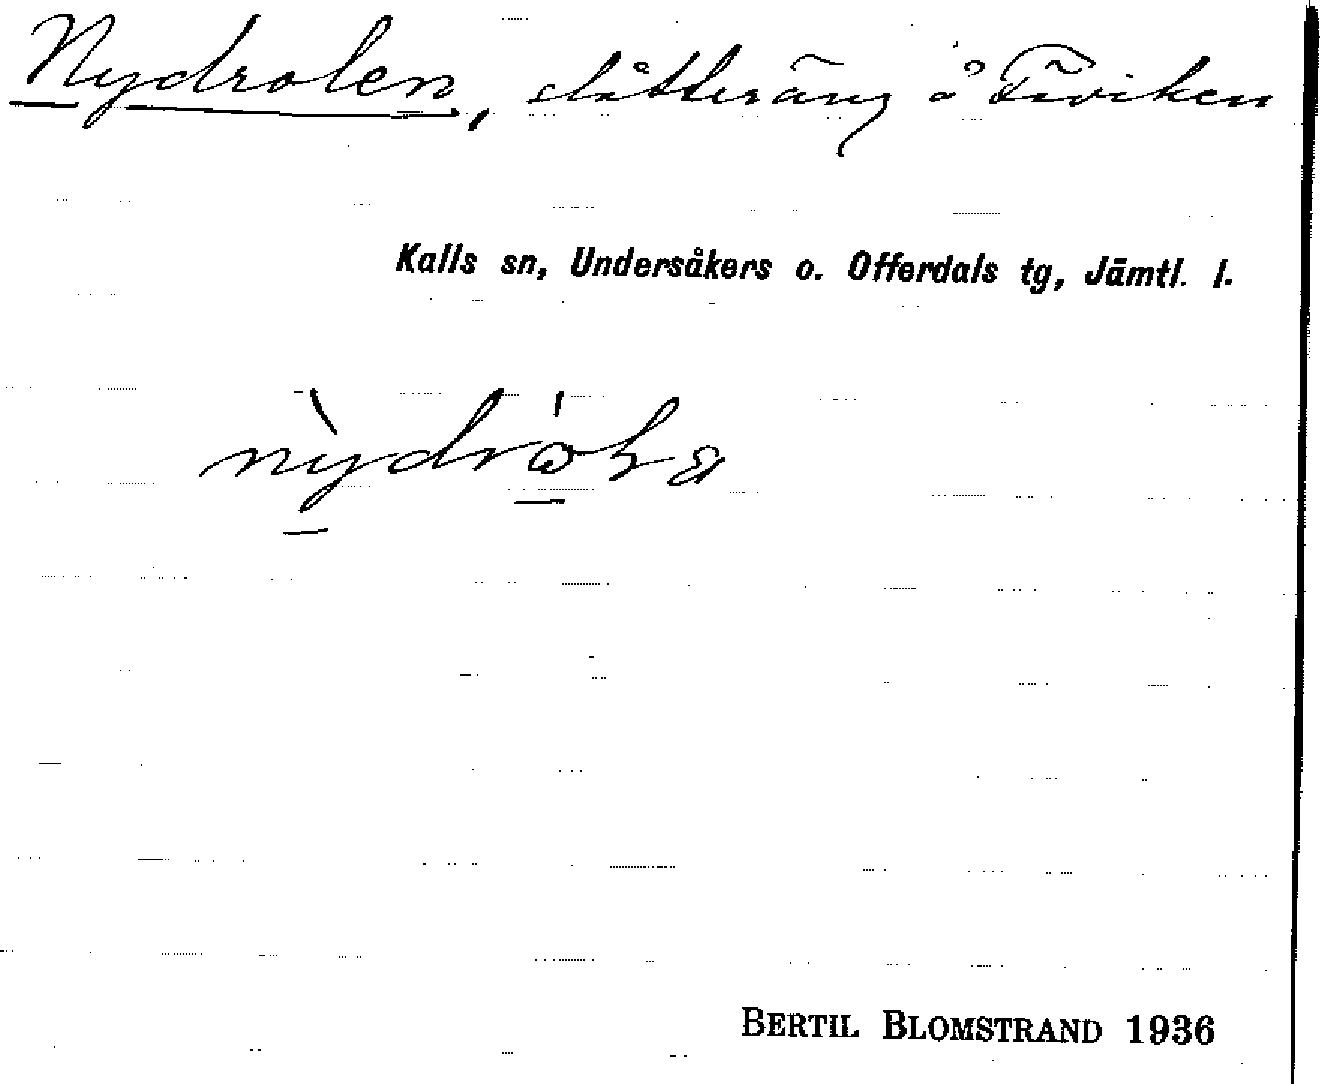 Nydrolen, slåtteräng å Tuviken
Kalls sn, Undersåkers o. Offerdals tg, Jämtl. l.
BERTIL BLOMSTRAND 1936